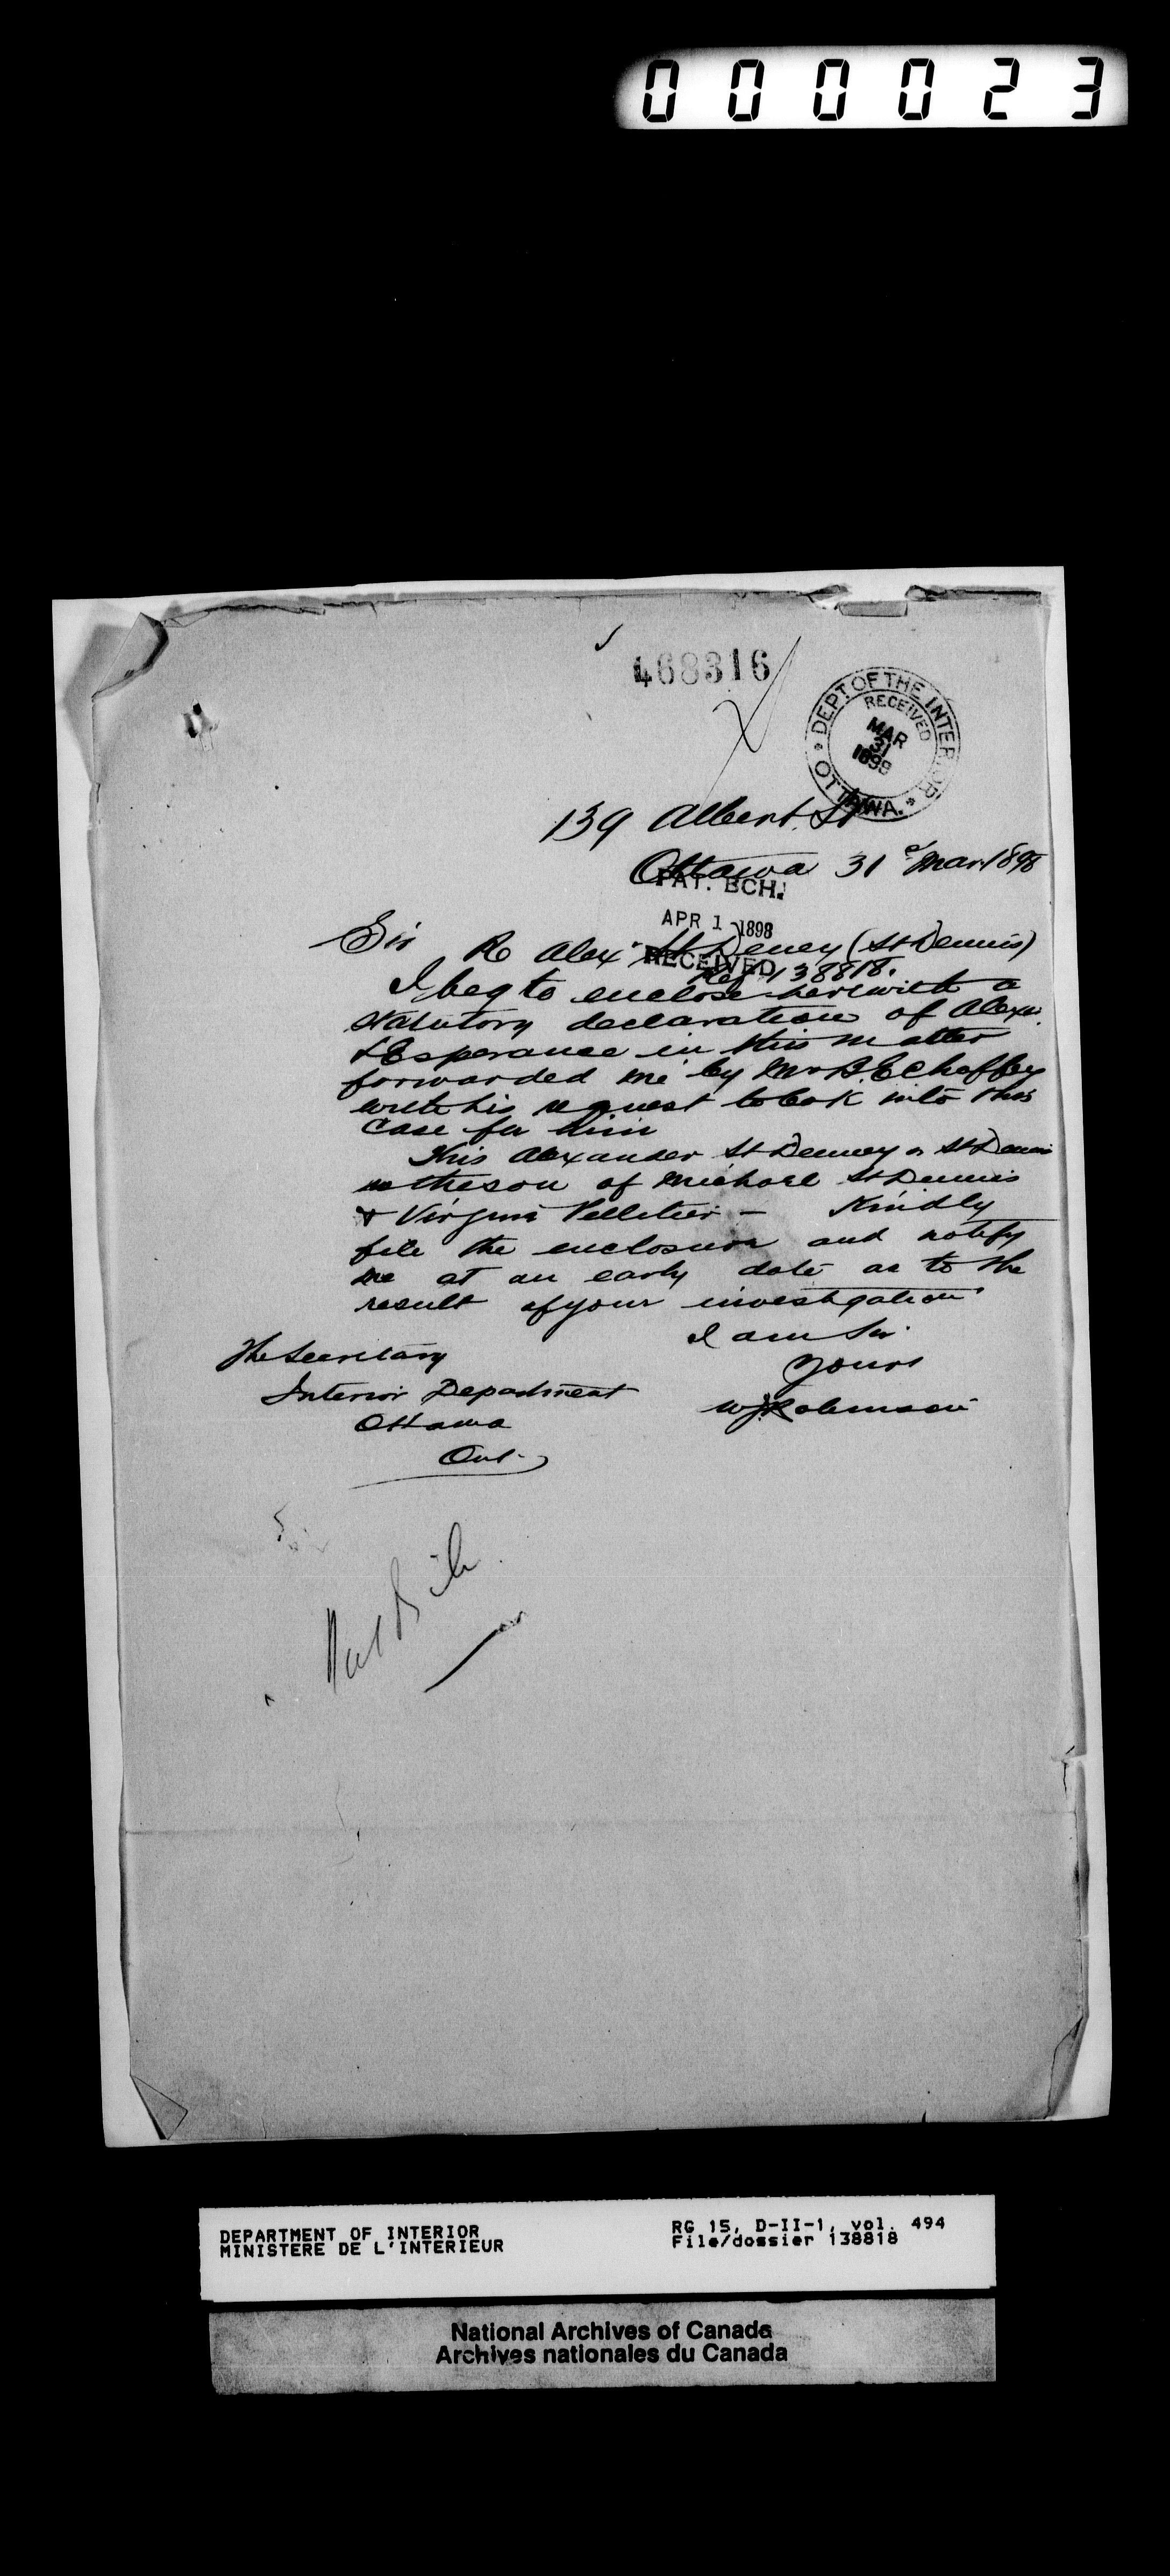 000023
468316
DEPT. OF THE INTERIOR
RECEIVED
MAR
31
1898
OTTAWA.
139 Albert St
Ottawa 31st Mar. 1898
PAT. BCH.
APR 1 1898
RECEIVED
Sir
Re Alexr St Deney (St Dennis)
Ref 138818.
I beg to enclose herewith a
statutory declaration of Alexr.
L'Esperance in this matter
forwarded me by Mr B.E Chaffey
with his request to look into this
case for him
This Alexander St Denney or St Denis
is the son of Michael St Dennis
& Virginia Pelletier — Kindly
file the enclosure and notify
me at an early date as to the
result of your investigation
I am Sir
Yours
W J Robinson
The Secretary
Interior Department
Ottawa
Ont.
DEPARTMENT OF INTERIOR
MINISTERE DE L'INTERIEUR
RG 15, D-II-1, vol. 494
File/dossier 138818
National Archives of Canada
Archives nationales du Canada